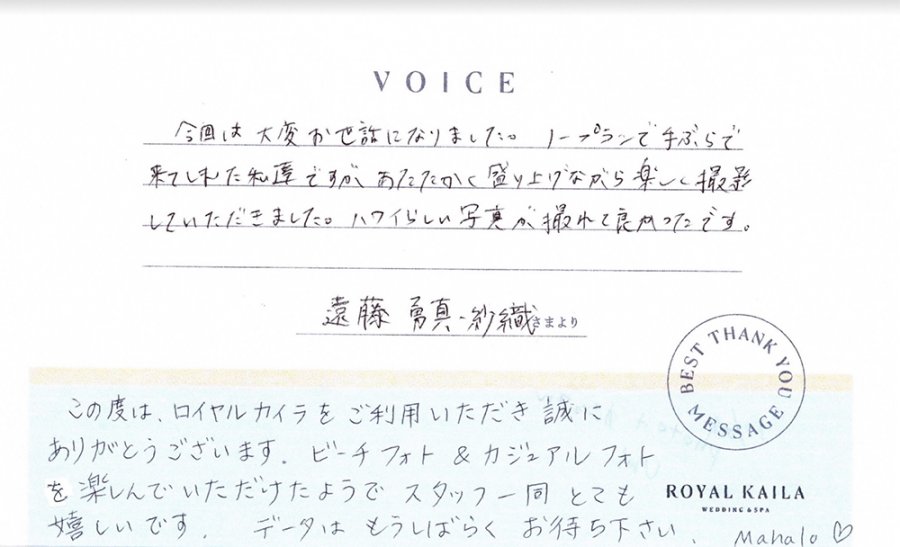 VOICE
今回は大変お世話になりました。ノープランで手ぶらで
来てしまった私達ですが、あたたかく盛り上げながら楽しく撮影
していただきました。ハワイらしい写真が撮れて良かったです。
遠藤 勇真・紗織さまより
BEST THANK YOU MESSAGE
この度は、ロイヤルカイラをご利用いただき誠に
ありがとうございます。ビーチフォト & カジュアルフォト
を楽しんでいただけたようでスタッフ一同とても
嬉しいです。 データはもうしばらくお待ち下さい。 Mahalo♡
ROYAL KAILA
WEDDING & SPA